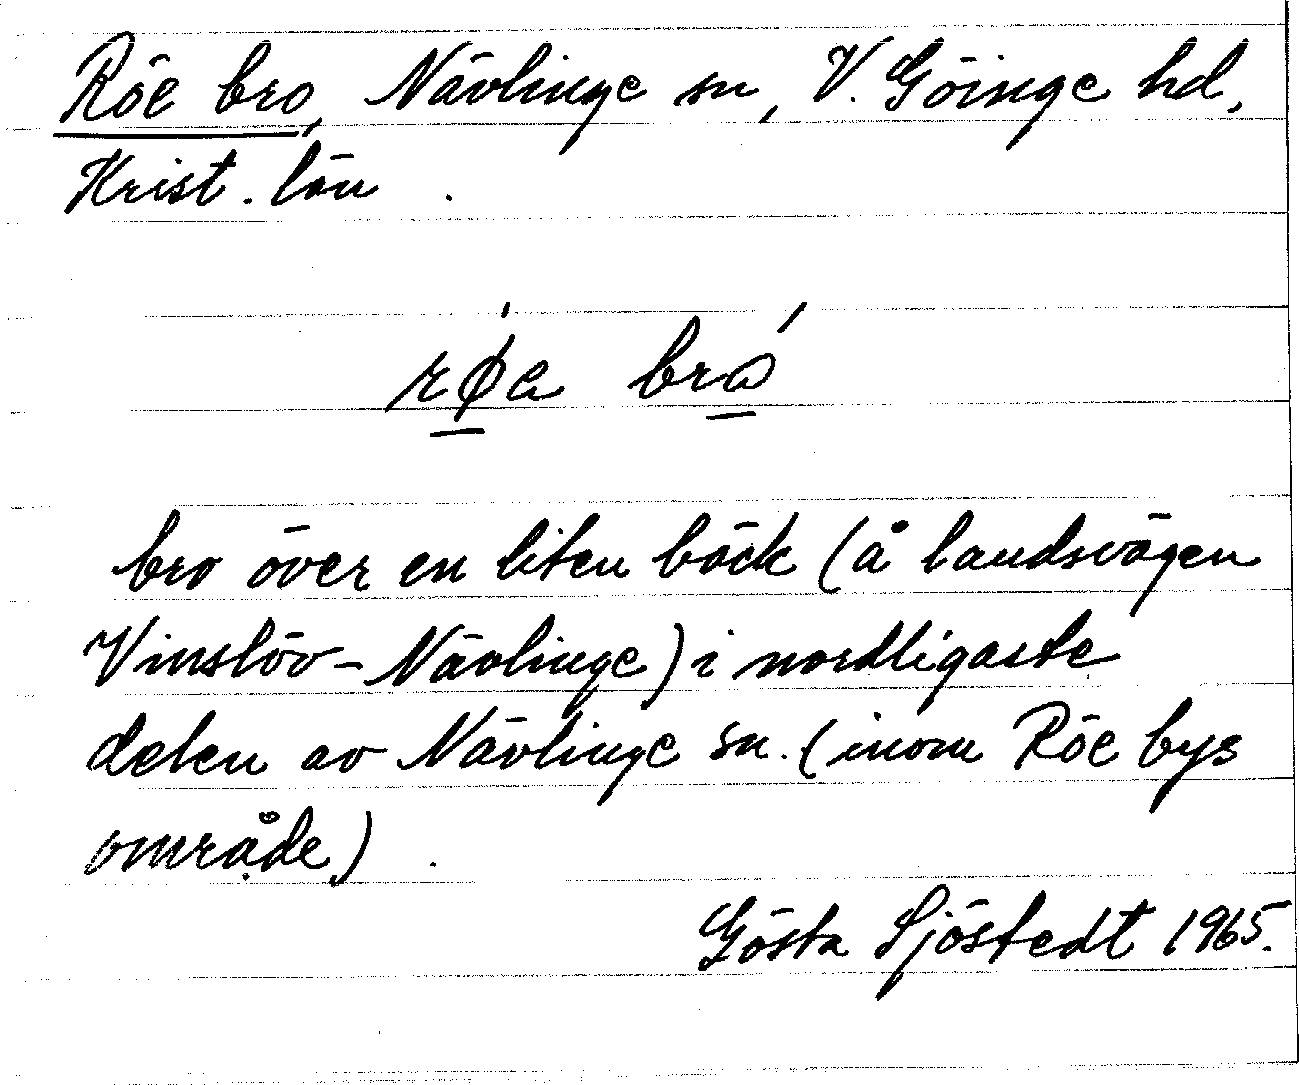 Röe bro, Nävlinge sn, V. Göinge hd,
Krist. län.
rǿ̲a bró̲
bro över en liten bäck (å landsvägen
Vinslöv-Nävlinge) i nordligaste
delen av Nävlinge sn. (inom Röe bys
område).
Gösta Sjöstedt 1965.